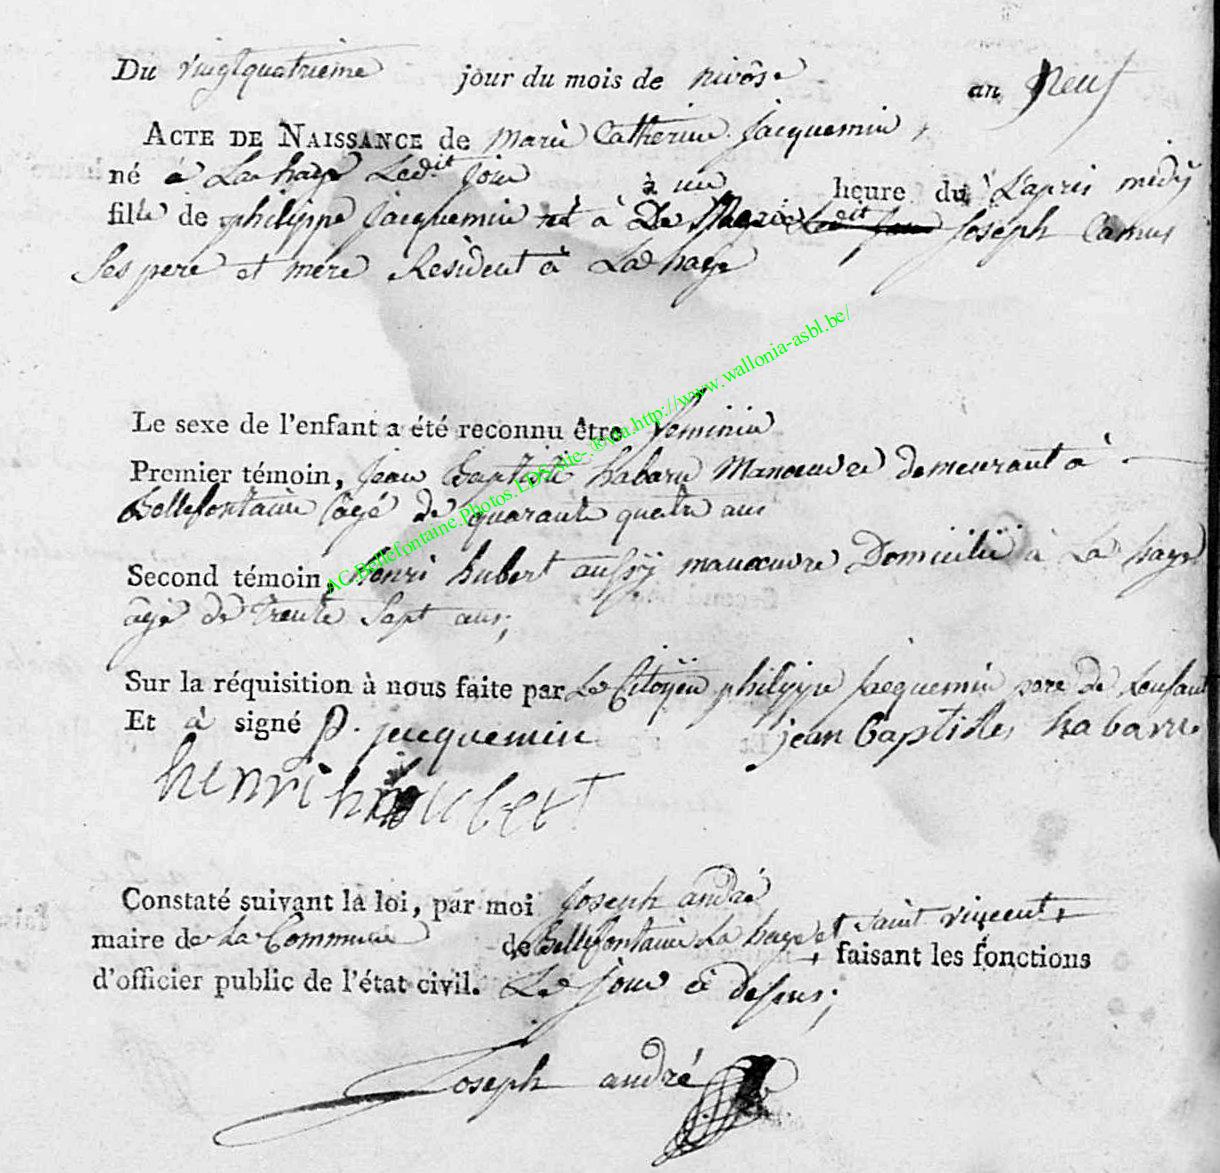 Du vingtquatrieme jour du mois de nivôse an Neuf
ACTE DE NAISSANCE de Marie Catherine Jacquemin,
né à La haye Ledit Jour à une heure du à L'apris midÿ
fille de philippe Jacquemin et à De Marie Ledit Jour Joseph Camus
Ses pere et mere Résident à La haye
Le sexe de l'enfant a été reconnu être feminin
Premier témoin, Jean Baptiste habaru Manoeuvre demeurant à
Bellefontaine âgé de quarante quatre ans
Second témoin, henri hubert aussÿ manoeuvre Domicilié à La haye
âgé de trente Sept ans;
Sur la réquisition à nous faite par Le Citoyen philippe Jacquemin pere de Lenfant
Et à signé p. jacquemin jean baptistes habaru.
henri houbert
Constaté suivant la loi, par moi Joseph andré
maire de La Commune de Bellefontaine La haye et Saint vincent, faisant les fonctions
d'officier public de l'état civil. Le jour ci dessus;
Joseph andré
AC.Bellefontaine.Photos.LDS.site-.®via.http://www.wallonia-asbl.be/